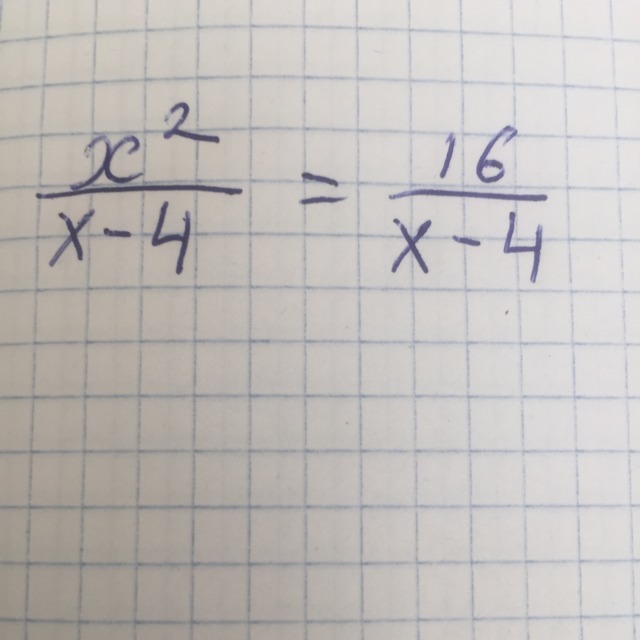 x² / x - 4 = 16 / x - 4